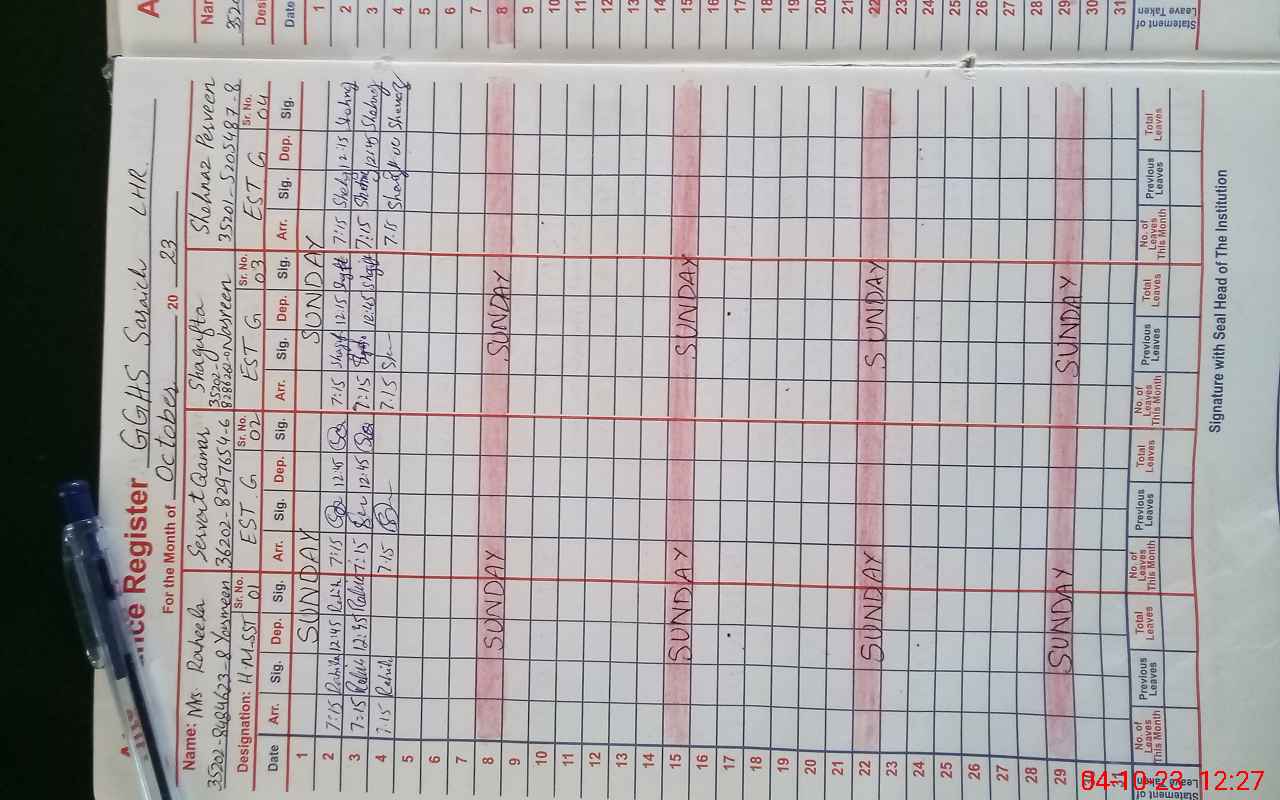 Attendance Register GGHS Saraich LHR.
For the Month of October 20 23
Name: Mrs. Raheela Yasmeen Servat Qamar Shagufta Nasreen Shehnaz Perveen
35202-8484623-8 36202-8297654-6 35202- 35201-5205487-8
Designation: H.M-SST Sr. No. 01 EST. G Sr. No. 02 EST G Sr. No. 03 EST G Sr. No. 04
Date Arr. Sig. Dep. Sig. Arr. Sig. Dep. Sig. Arr. Sig. Dep. Sig. Arr. Sig. Dep. Sig.
1 SUNDAY SUNDAY
2 7:15 12:45 7:15 12:45 7:15 12:15 7:15 12:15
3 7:15 12:45 7:15 12:45 7:15 12:45 7:15 12:45
4 7:15 7:15 7:15 7:15
5
6
7
8 SUNDAY SUNDAY
9
10
11
12
13
14
15 SUNDAY SUNDAY
16
17
18
19
20
21
22 SUNDAY SUNDAY
23
24
25
26
27
28
29 SUNDAY SUNDAY
30
31
Statement of Leave Taken No. of Leaves This Month Previous Leaves Total Leaves No. of Leaves This Month Previous Leaves Total Leaves No. of Leaves This Month Previous Leaves Total Leaves No. of Leaves This Month Previous Leaves Total Leaves
Signature with Seal Head of The Institution
Date 1 2 3 4 5 6 7 8 9 10 11 12 13 14 15 16 17 18 19 20 21 22 23 24 25 26 27 28 29 30 31 Statement of Leave Taken
04-10-23 12:27